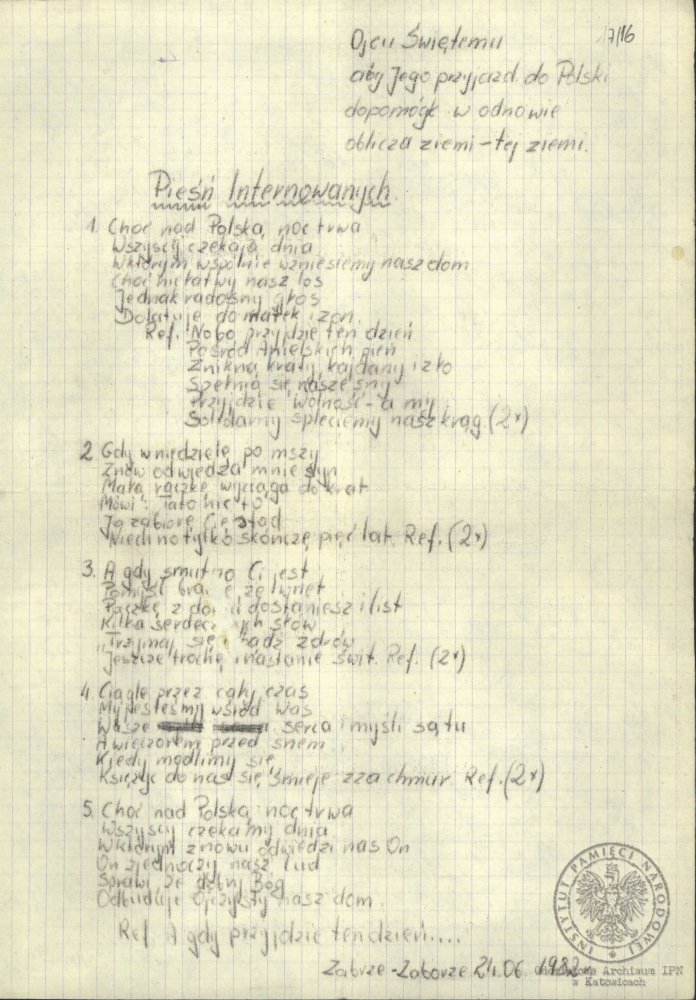 17/16
Ojcu Świętemu
aby Jego przyjazd do Polski
dopomógł w odnowie
oblicza ziemi – tej ziemi.
Pieśń Internowanych
1. Choć nad Polską noc trwa
Wszyscy czekają dnia
W którym wspólnie wzniesiemy nasz dom
Choć niełatwy nasz los
Jednak radosny głos
Dolatuje do matek i żon.
Ref. No bo przyjdzie ten dzień
Pośród Anielskich pień
Znikną kraty, kajdany i zło
Spełnią się nasze sny
Przyjdzie Wolność – a my
Solidarny spleciemy nasz krąg (2x)
2. Gdy w niedzielę po mszy
Znów odwiedza mnie syn
Małą rączkę wyciąga do krat
Mówi: Tato nic to
Ja zabiorę Cię stąd
Niech no tylko skończę pięć lat. Ref. (2x)
3. A gdy smutno Ci jest
Pomyśl bracie, że wnet
Paczkę z domu dostaniesz i list
Kilka serdecznych słów
"Trzymaj się i bądź zdrów
Jeszcze trochę i nastanie świt. Ref. (2x)
4. Ciągle przez cały czas
My jesteśmy wśród Was
Wasze serca i myśli są tu
A wieczorem przed snem
Kiedy modlimy się
Księżyc do nas się śmieje zza chmur Ref. (2x)
5. Choć nad Polską noc trwa
Wszyscy czekamy dnia
W którym znowu odwiedzi nas On
On zjednoczy nasz lud
Sprawi, że dobry Bóg
Odbuduje Ojczysty nasz dom.
Ref. A gdy przyjdzie ten dzień....
Zabrze-Zaborze 21.06.1982.
INSTYTUT PAMIĘCI NARODOWEJ
Oddziałowe Archiwum IPN
w Katowicach